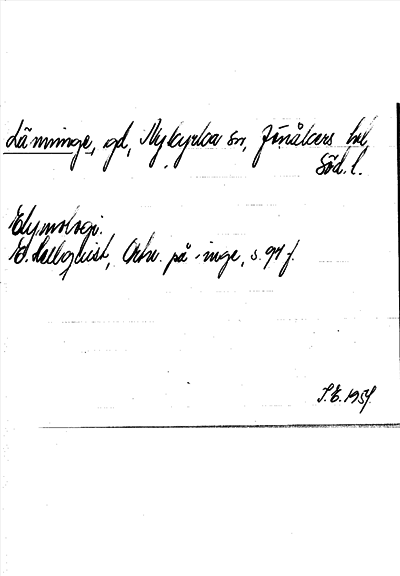 Länninge, gd, Nykyrka sn, Jönåkers hd,
Söd. l.
Etymologi.
E. Hellquist, Ortn. på -inge, s. 97 f.
S.E. 1954